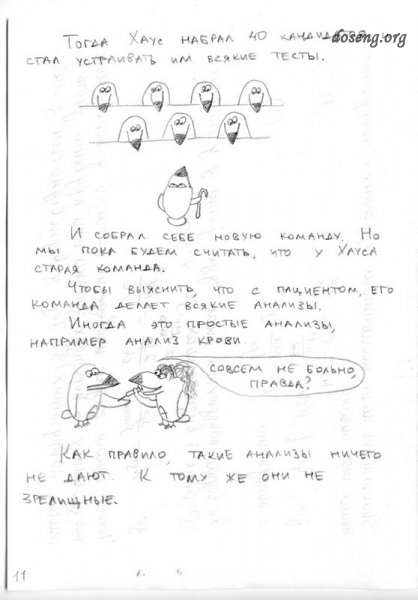 doseng.org
Тогда Хаус набрал 40 кандидатов
стал устраивать им всякие тесты.
И собрал себе новую команду. Но
мы пока будем считать, что у Хауса
старая команда.
Чтобы выяснить, что с пациентом, его
команда делает всякие анализы.
Иногда это простые анализы,
например анализ крови.
Совсем не больно,
правда?
Как правило, такие анализы ничего
не дают. К тому же они не
зрелищные.
11